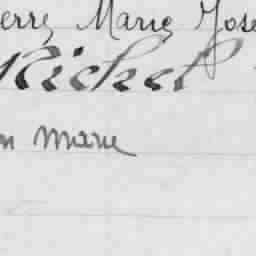 erre Marie Jose
Richet
n Marie